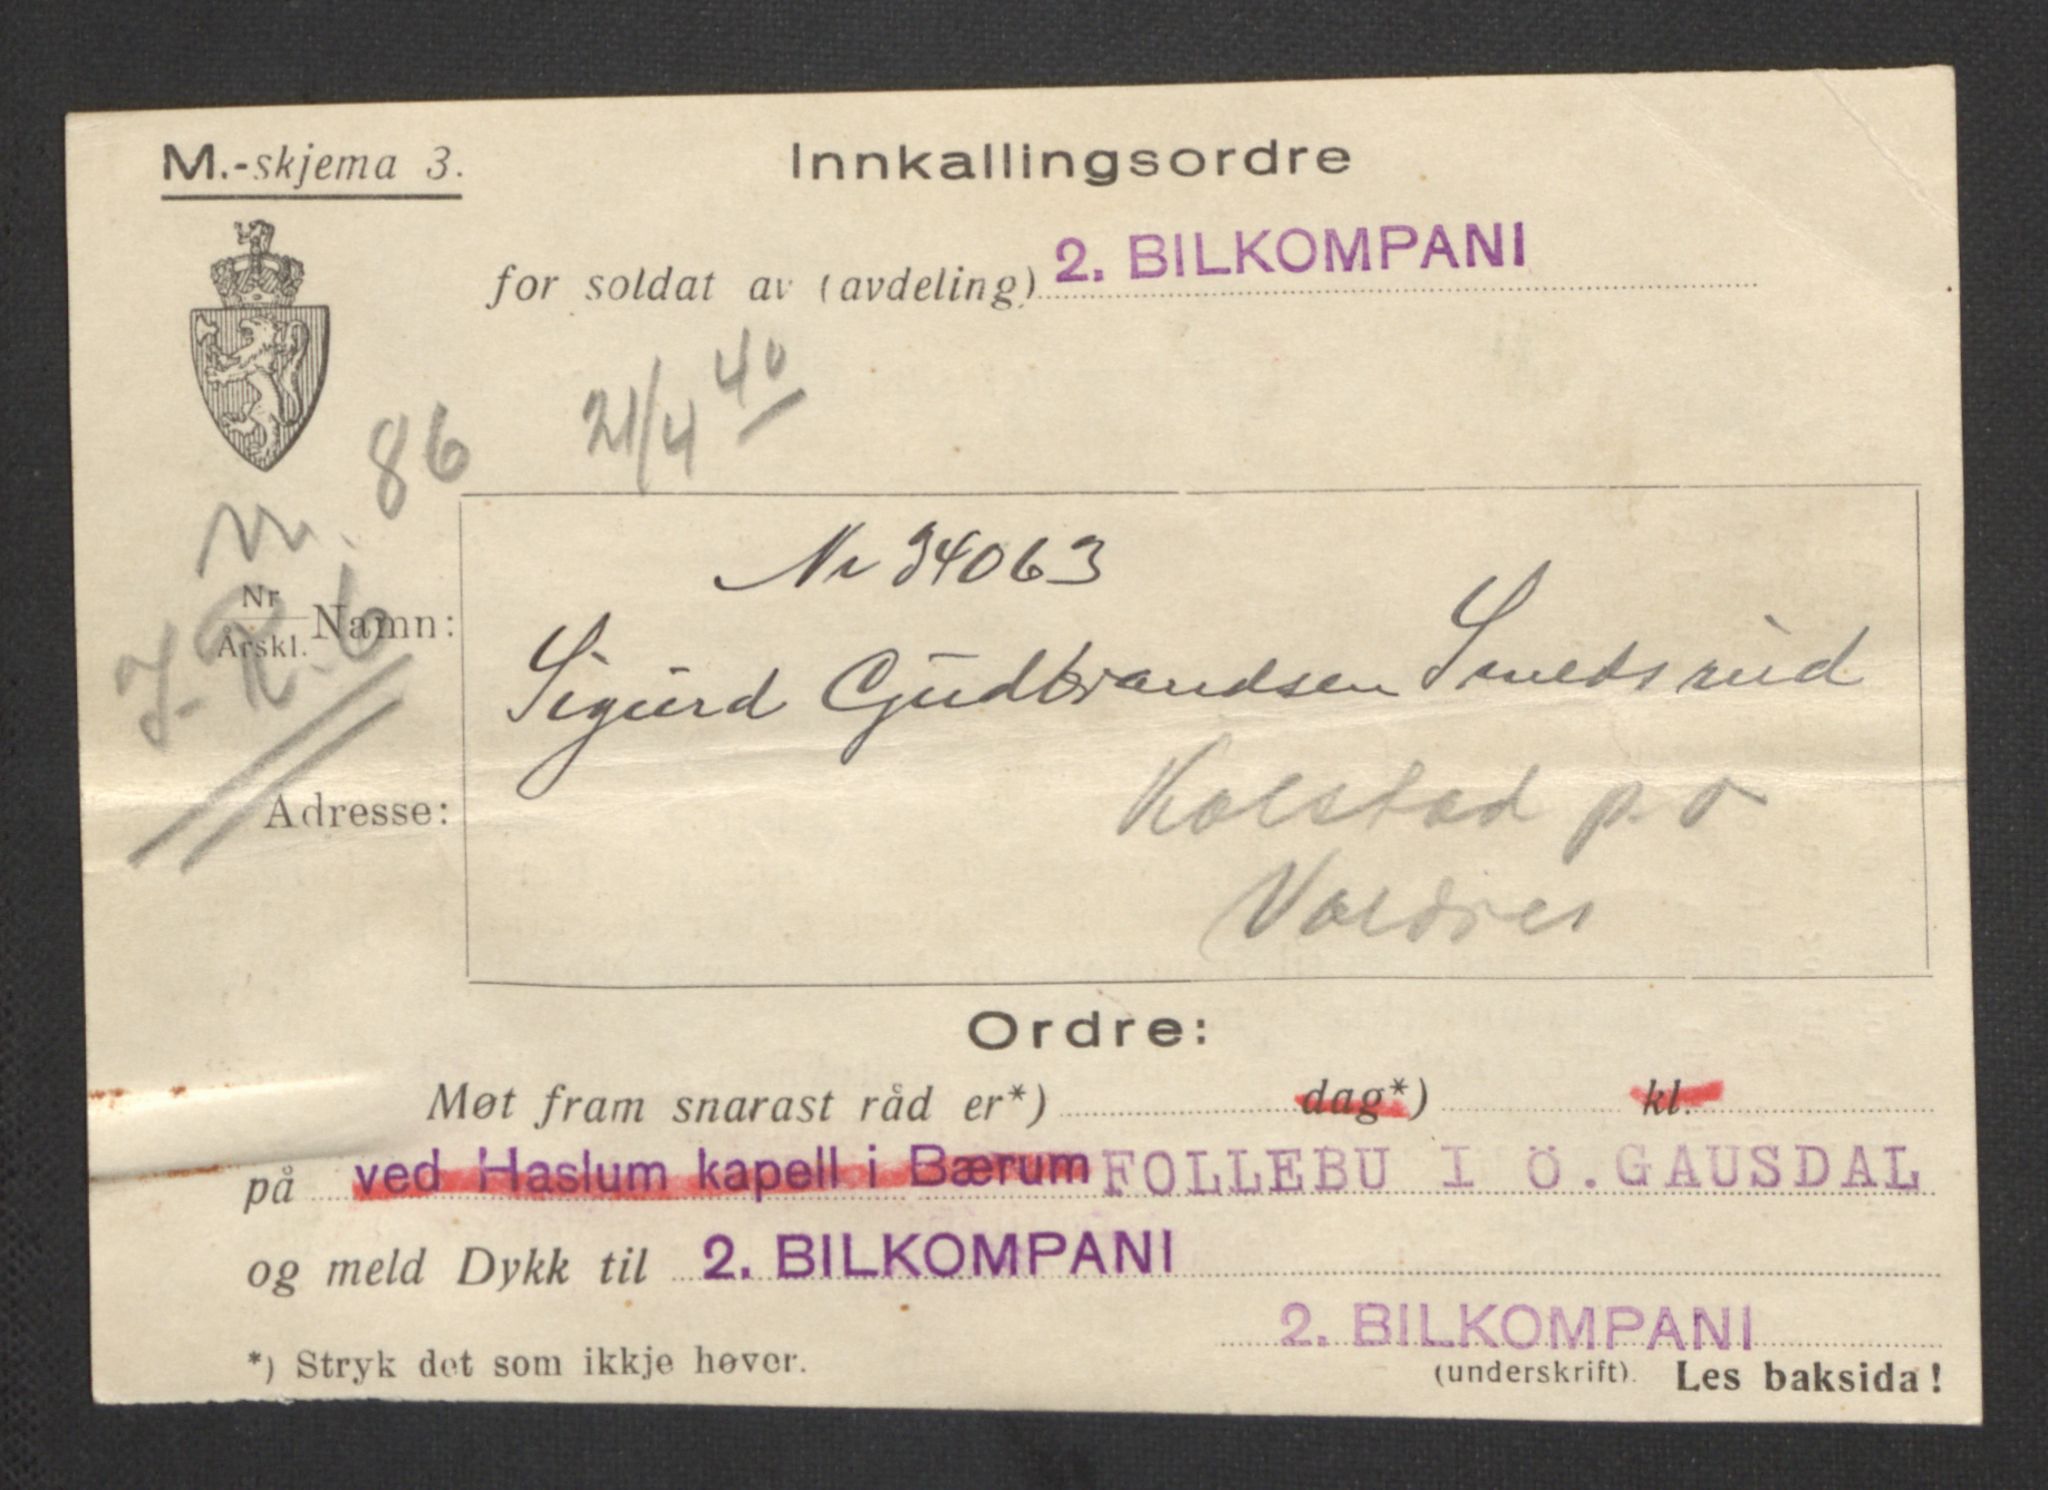 M.-skjema 3.
Innkallingsordre
for soldat av (avdeling) 2. BILKOMPANI
21/4 40
nr. 86
I.R. 6
Nr
Årskl. Namn:
Nr 34063
Sigurd Gudbrandsen Smedsrud
Adresse:
Kolstad p.o
Valdres
Ordre:
Møt fram snarast råd er*) dag*) kl.
på ved Haslum kapell i Bærum FOLLEBU I Ö. GAUSDAL
og meld Dykk til 2. BILKOMPANI
2. BILKOMPANI
*) Stryk det som ikkje høver.
(underskrift). Les baksida!